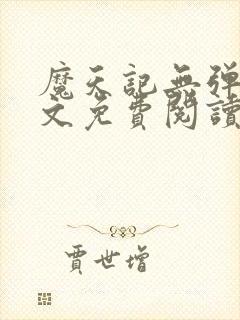 魔天記無彈
文免費閱讀
賈世增